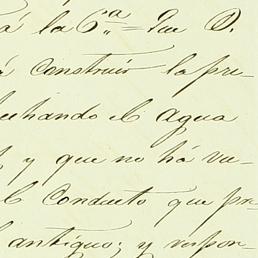 á la 6.ª = Que D.
á construir la pre-
echando el agua
y que no há va-
el conducto que pr
antiguo; y respon-